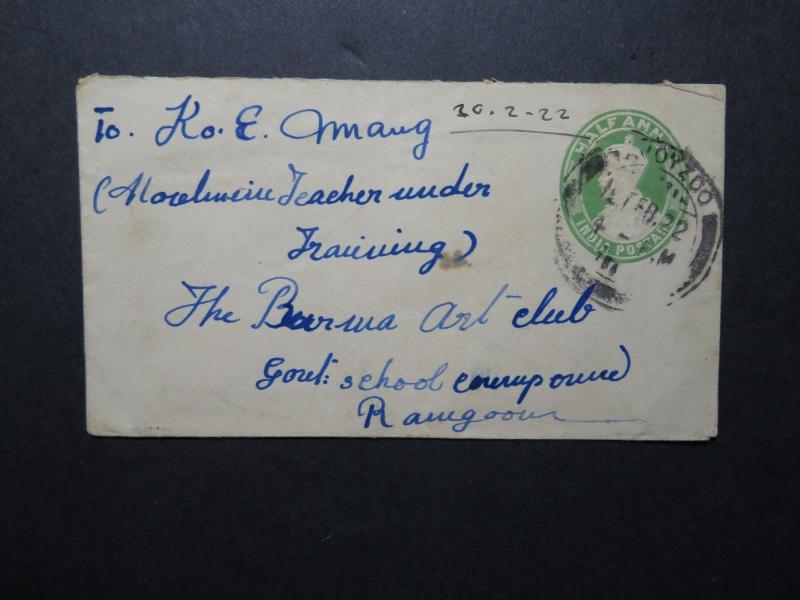 20.2-22
To. Ko. E. Maung
(Moulmein Teacher under
Training)
The Burma Art club
Govt: school compound
Rangoon
HALF ANNA
INDIA POSTAGE
FEB. 22